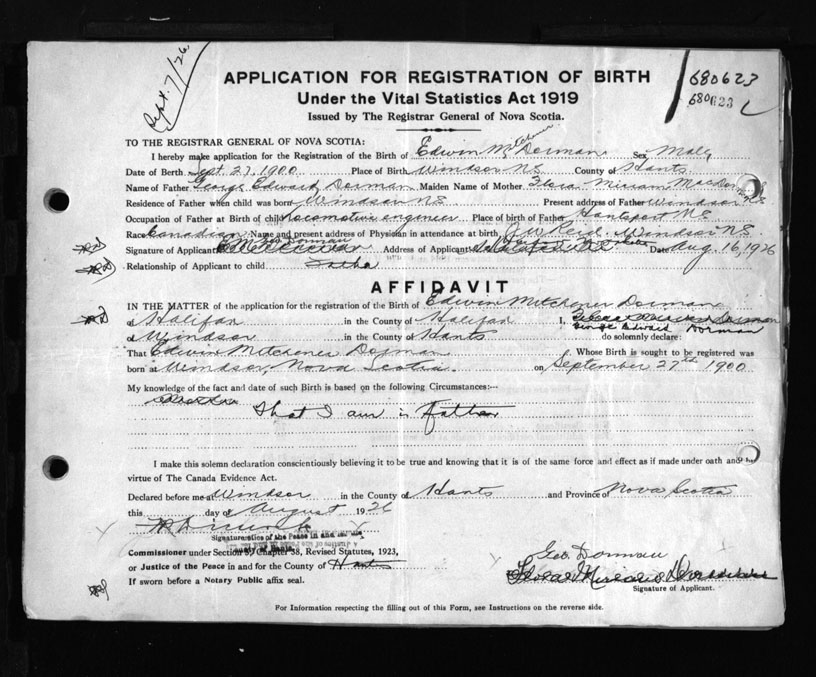 Sept. 7/26
680623
680623
APPLICATION FOR REGISTRATION OF BIRTH
Under the Vital Statistics Act 1919
Issued by The Registrar General of Nova Scotia.
TO THE REGISTRAR GENERAL OF NOVA SCOTIA:
I hereby make application for the Registration of the Birth of Edwin Mitchener Dorman Sex Male
Date of Berth Sept. 27, 1900 Place of Birth Windsor N S County of Hants
Name of Father George Edward Dorman Maiden Name of Mother Flora Miriam MacDormand
Residence of Father when child was born Windsor N S Present address of Father Windsor N S
Occupation of Father at Birth of child locomotive engineer Place of birth of Father Hantsport N S
Race Canadian Name and present address of Physician in attendance at birth, J W Reid. Windsor N S.
Signature of Applicant Dorman Address of Applicant Date Aug 16, 1926
Relationship of Applicant to child Father
AFFIDAVIT
IN THE MATTER of the application for the registration of the Birth of Edwin Mitchener Dorman
of Halifax in the County of Halifax I, George Edward Dorman
of Windsor in the County of Hants do solemnly declare:
That Edwin Mitchener Dorman Whose Birth is sought to be registered was
born at Windsor, Nova Scotia on September 27th 1900
My knowledge of the fact and date of such Birth is based on the following Circumstances:—
that I am is Father
I make this solemn declaration conscientiously believing it to be true and knowing that it is of the same force and effect as if made under oath and by
virtue of The Canada Evidence Act.
Declared before me at Windsor in the County of Hants and Province of Nova Scotia
this day of August 1926
Commissioner under Section Chapter 38, Revised Statutes, 1923,
or Justice of the Peace in and for the County of Hants
If sworn before a Notary Public affix seal.
Geo. Dorman
Signature of Applicant.
For Information respecting the filling out of this Form, see Instructions on the reverse side.